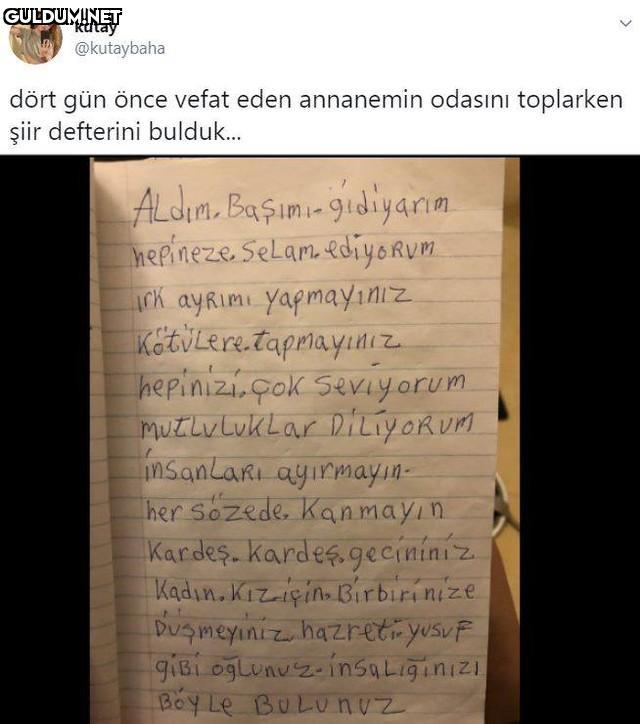 GULDUM.NET
kutay
@kutaybaha
dört gün önce vefat eden annanemin odasını toplarken
şiir defterini bulduk...
ALdım. Başımı- gidiyarım
hepineze. SeLam. ediyoRum
ırk ayRımı yapmayınız
KötüLere. tapmayınız
hepinizi. çok Seviyorum
mutLuLukLar DiLiyoRum
insanLaRı ayırmayın-
her sözede. Kanmayın
Kardeş. kardeş. gecininiz
Kadın. Kız-için. Birbirinize
Düşmeyiniz hazreti- yusuf
giBi oğLunuz-insaLığınızı
BöyLe BuLunuz